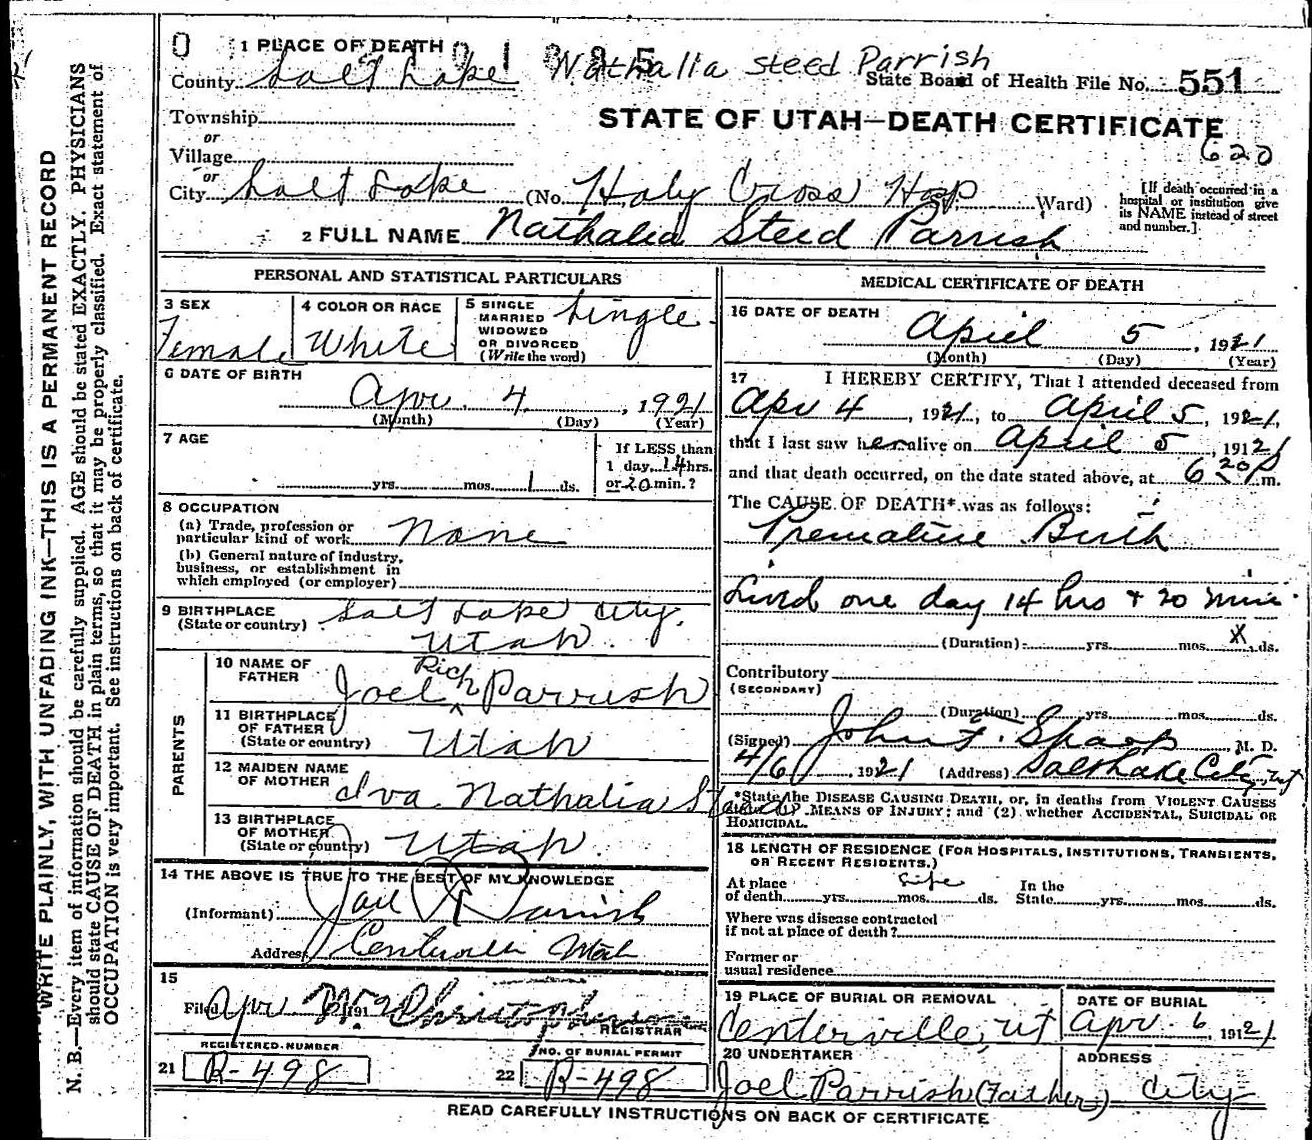 WRITE PLAINLY, WITH UNFADING INK—THIS IS A PERMANENT RECORD
N. B.—Every item of information should be carefully supplied. AGE should be stated EXACTLY. PHYSICIANS
should state CAUSE OF DEATH in plain terms, so that it may be properly classified. Exact statement of
OCCUPATION is very important. See instructions on back of certificate.
1 PLACE OF DEATH
County Salt Lake Nathalia Steed Parrish
State Board of Health File No. 551
Township
STATE OF UTAH—DEATH CERTIFICATE
or
Village
620
or
City Salt Lake (No. Holy Cross Hosp Ward)
[If death occurred in a
hospital or institution give
its NAME instead of street
and number.]
2 FULL NAME Nathalia Steed Parrish
PERSONAL AND STATISTICAL PARTICULARS
3 SEX
Female
4 COLOR OR RACE
White
5 SINGLE
MARRIED
WIDOWED
OR DIVORCED
(Write the word)
Single
6 DATE OF BIRTH
Apr. 4, 1921
(Month) (Day) (Year)
7 AGE
yrs. mos. 1 ds.
If LESS than
1 day, 14 hrs.
or 20 min.?
8 OCCUPATION
(a) Trade, profession or
particular kind of work None
(b) General nature of industry,
business, or establishment in
which employed (or employer)
9 BIRTHPLACE
(State or country) Salt Lake City,
Utah
PARENTS
10 NAME OF
FATHER
Rich
Joel ^ Parrish
11 BIRTHPLACE
OF FATHER
(State or country) Utah
12 MAIDEN NAME
OF MOTHER Iva Nathalia Steed
13 BIRTHPLACE
OF MOTHER
(State or country) Utah.
14 THE ABOVE IS TRUE TO THE BEST OF MY KNOWLEDGE
(Informant) Joel R Parrish
Address Centerville Utah
15
Filed Apr 191
REGISTRAR
REGISTERED NUMBER
21 R-498
NO. OF BURIAL PERMIT
22 R-498
MEDICAL CERTIFICATE OF DEATH
16 DATE OF DEATH
April 5, 1921
(Month) (Day) (Year)
17 I HEREBY CERTIFY, That I attended deceased from
Apr 4, 1921, to April 5, 1921,
that I last saw her alive on April 5, 1921
and that death occurred, on the date stated above, at 6 20 P m.
The CAUSE OF DEATH* was as follows:
Premature Birth
Lived one day 14 hrs + 20 min.
(Duration) yrs. mos. X ds.
Contributory
(SECONDARY)
(Duration) yrs. mos. ds.
(Signed) John F. Sharp, M. D.
4/6, 1921 (Address) Salt Lake City, Ut
*State the DISEASE CAUSING DEATH, or, in deaths from VIOLENT CAUSES
MEANS OF INJURY; and (2) whether ACCIDENTAL, SUICIDAL OR
HOMICIDAL.
18 LENGTH OF RESIDENCE (FOR HOSPITALS, INSTITUTIONS, TRANSIENTS,
OR RECENT RESIDENTS.)
At place
of death yrs. Life mos. ds.
In the
State yrs. mos. ds.
Where was disease contracted
if not at place of death?
Former or
usual residence
19 PLACE OF BURIAL OR REMOVAL
Centerville, Ut
DATE OF BURIAL
Apr. 6, 1921
20 UNDERTAKER
Joel Parrish (Father)
ADDRESS
City
READ CAREFULLY INSTRUCTIONS ON BACK OF CERTIFICATE